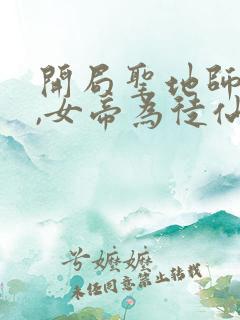 開局聖地師
,女帝為徒仙
兮嬤嬤
未經同意禁止轉載